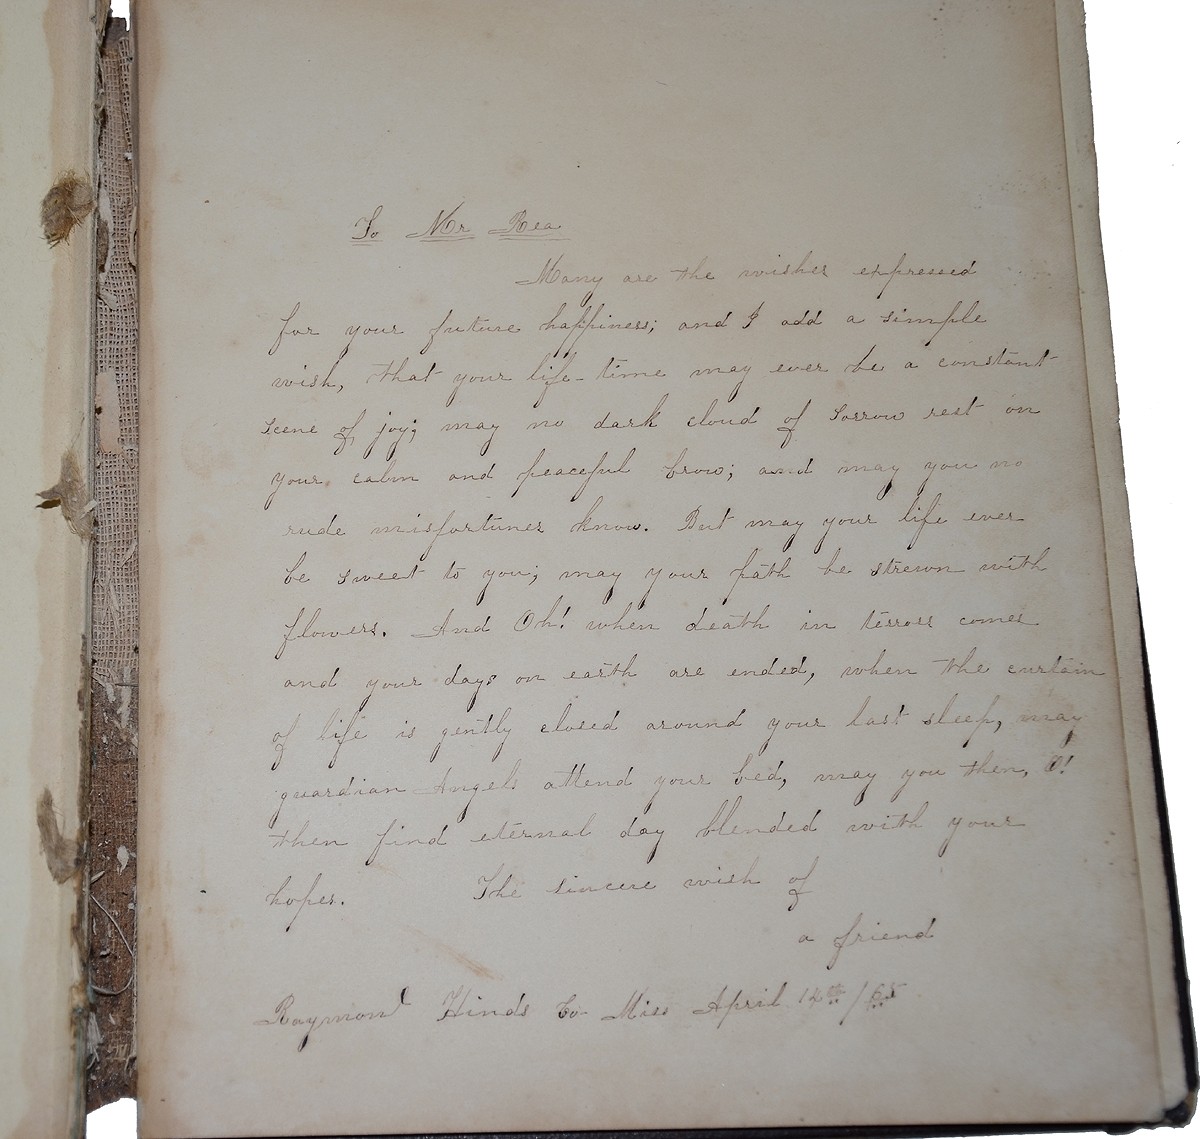 To Mr Rea
Many are the wishes expressed
for your future happiness; and I add a simple
wish, that your life-time may ever be a constant
scene of joy; may no dark cloud of sorrow rest on
your calm and peaceful brow; and may you no
rude misfortunes know. But may your life ever
be sweet to you; may your path be strewn with
flowers. And Oh! when death in terrors comes
and your days on earth are ended, when the curtain
of life is gently closed around your last sleep, may
guardian Angels attend your bed, may you then, O!
then find eternal day blended with your
hopes. The sincere wish of
a friend
Raymond Hinds Co- Miss April 12th /65